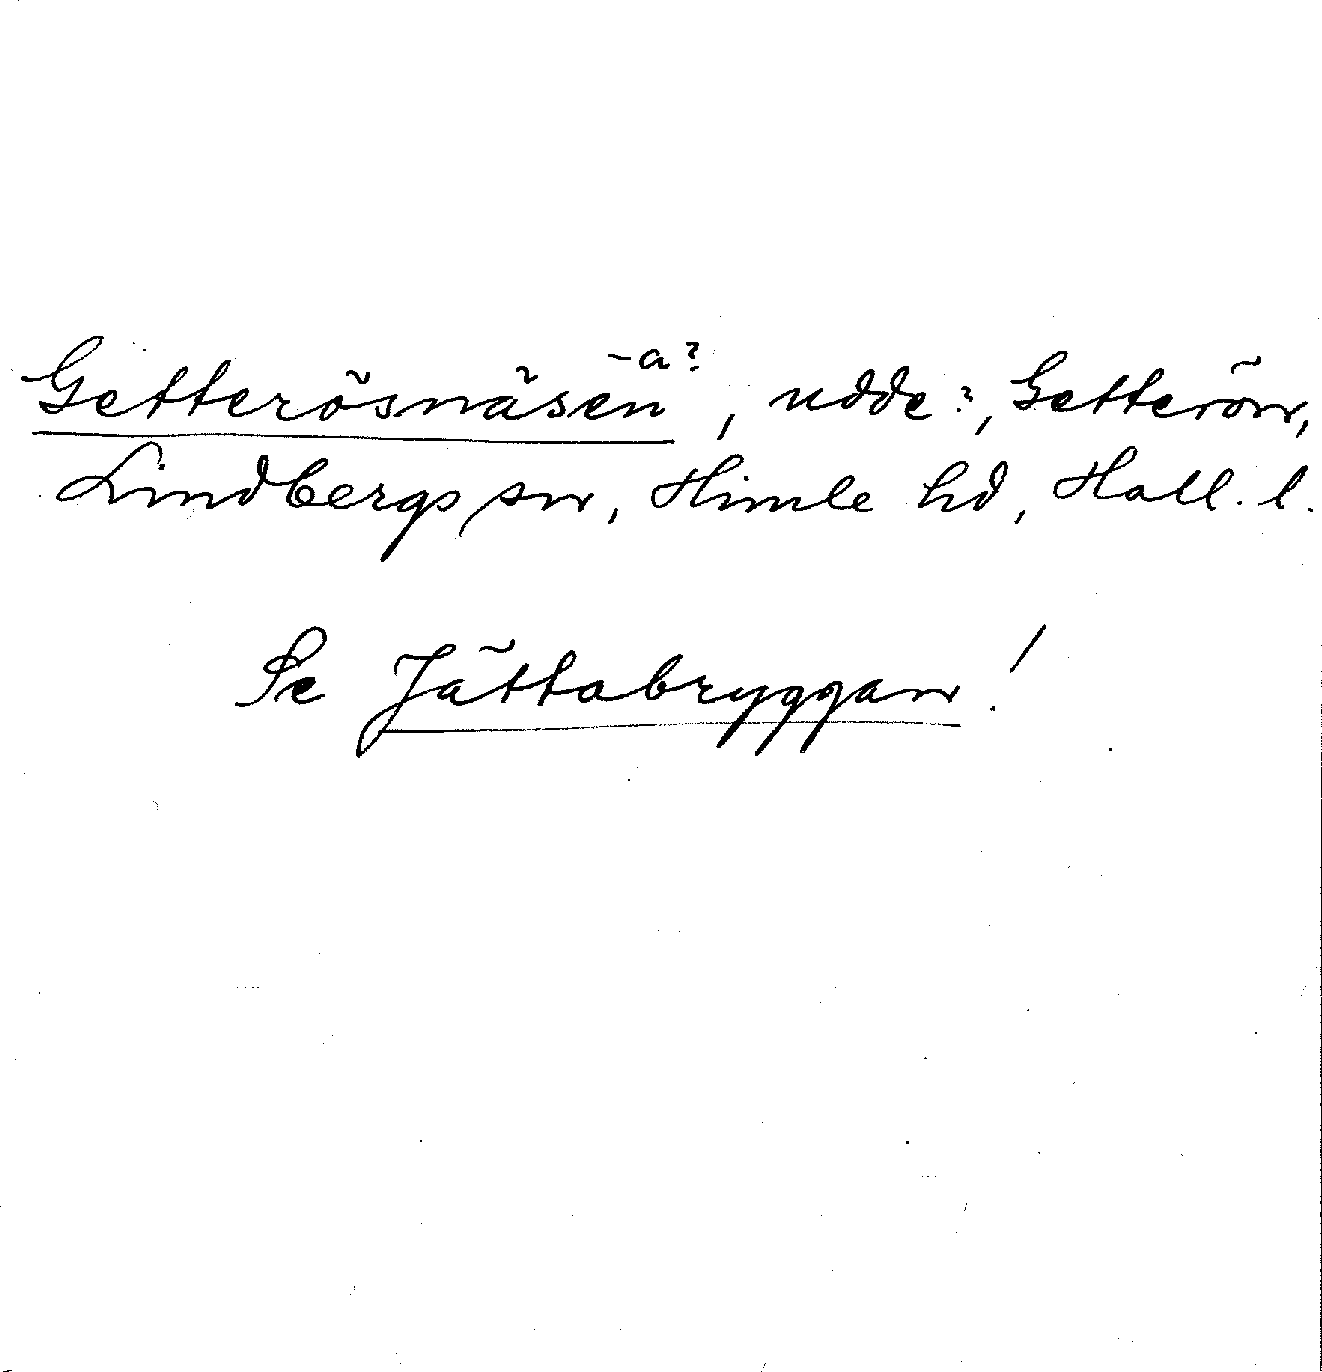 -a?
Getterösnäsen, udde?, Getterön,
Lindbergs sn, Himle hd, Hall. l.
Se Jättabryggan!